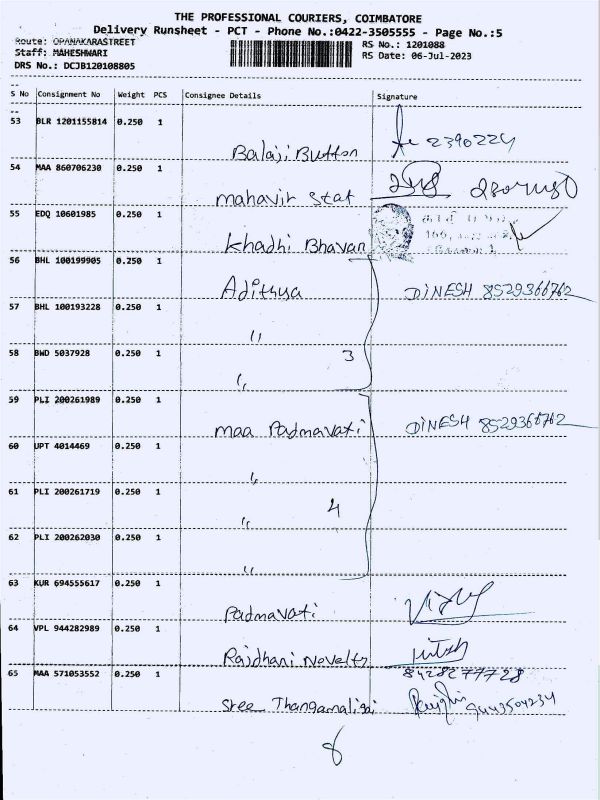 THE PROFESSIONAL COURIERS, COIMBATORE
Delivery Runsheet - PCT - Phone No.:0422-3505555 - Page No.:5
Route: OPANAKARASTREET
RS No.: 1201088
Staff: MAHESHWARI
RS Date: 06-Jul-2023
DRS No.: DCJB120108805
S No Consignment No Weight PCS Consignee Details Signature
53 BLR 1201155814 0.250 1
Balaji Button 2390224
54 MAA 860706230 0.250 1
mahavir stat
55 EDQ 10601985 0.250 1
Khadhi Bhavan
56 BHL 100199905 0.250 1
Adithya DINESH 8529366762
57 BHL 100193228 0.250 1
"
58 BWD 5037928 0.250 1
3
"
59 PLI 200261989 0.250 1
maa Padmavati DINESH 8529366762
60 UPT 4014469 0.250 1
"
61 PLI 200261719 0.250 1
4
"
62 PLI 200262030 0.250 1
"
63 KUR 694555617 0.250 1
Padmavati
64 VPL 944282989 0.250 1
Rajdhani Novelty
65 MAA 571053552 0.250 1 8428277728
Sree Thangamaligai 9443504234
8